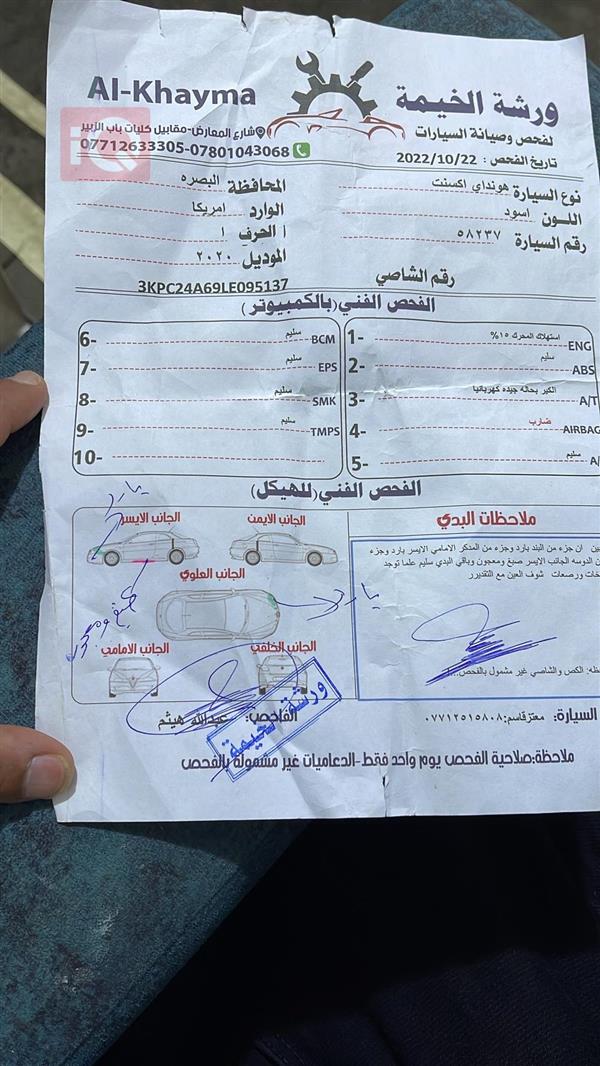 Al-Khayma
ورشة الخيمة
لفحص وصيانة السيارات
شارع المعارض-مقابيل كليات باب الزبير
07712633305-07801043068
تاريخ الفحص : 2022/10/22
iQ
نوع السيارة هونداي اكسنت
المحافظة البصره
اللــون اسود
الوارد امريكا
رقم السيارة ٥٨٢٣٧
الحرف ا
الموديل ٢٠٢٠
رقم الشاصي
3KPC24A69LE095137
الفحص الفني(بالكمبيوتر )
1- استهلاك المحرك ١٥% ENG
2- سليم ABS
3- الكير بحاله جيده كهربائيا A/T
4- ضارب AIRBAG
5- سليم A/
6- سليم BCM
7- سليم EPS
8- سليم SMK
9- سليم TMPS
10-
الفحص الفني(للهيكل )
الجانب الايمن
الجانب الايسر
الجانب العلوي
الجانب الخلفي
الجانب الامامي
بارد
بارد
صبغ ومعجون
ملاحظات البدي
ان جزء من البند بارد وجزء من المدكر الامامي الايسر بارد وجزء
الدوسه الجانب الايسر صبغ ومعجون وباقي البدي سليم علما توجد
ورصعات شوف العين مع التقديرر
الكص والشاصي غير مشمول بالفحص....
السيارة: معتزقاسم:٠٧٧١٢٥١٥٨٠٨
الفاحص: عبدالله هيثم
ورشة الخيمة
ملاحظة:صلاحية الفحص يوم واحد فقط-الدعاميات غير مشمولة بالفحص